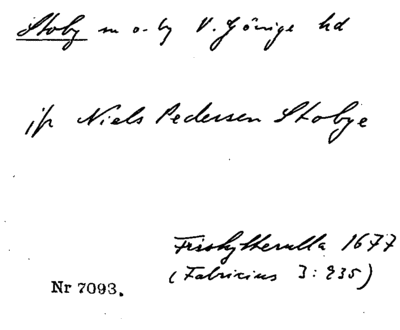 Stoby sn o. by V. Göinge hd
i/p Niels Pedersen Stobye
Friskytterulla 1677
(Fabricius 3:235)
Nr 7093.